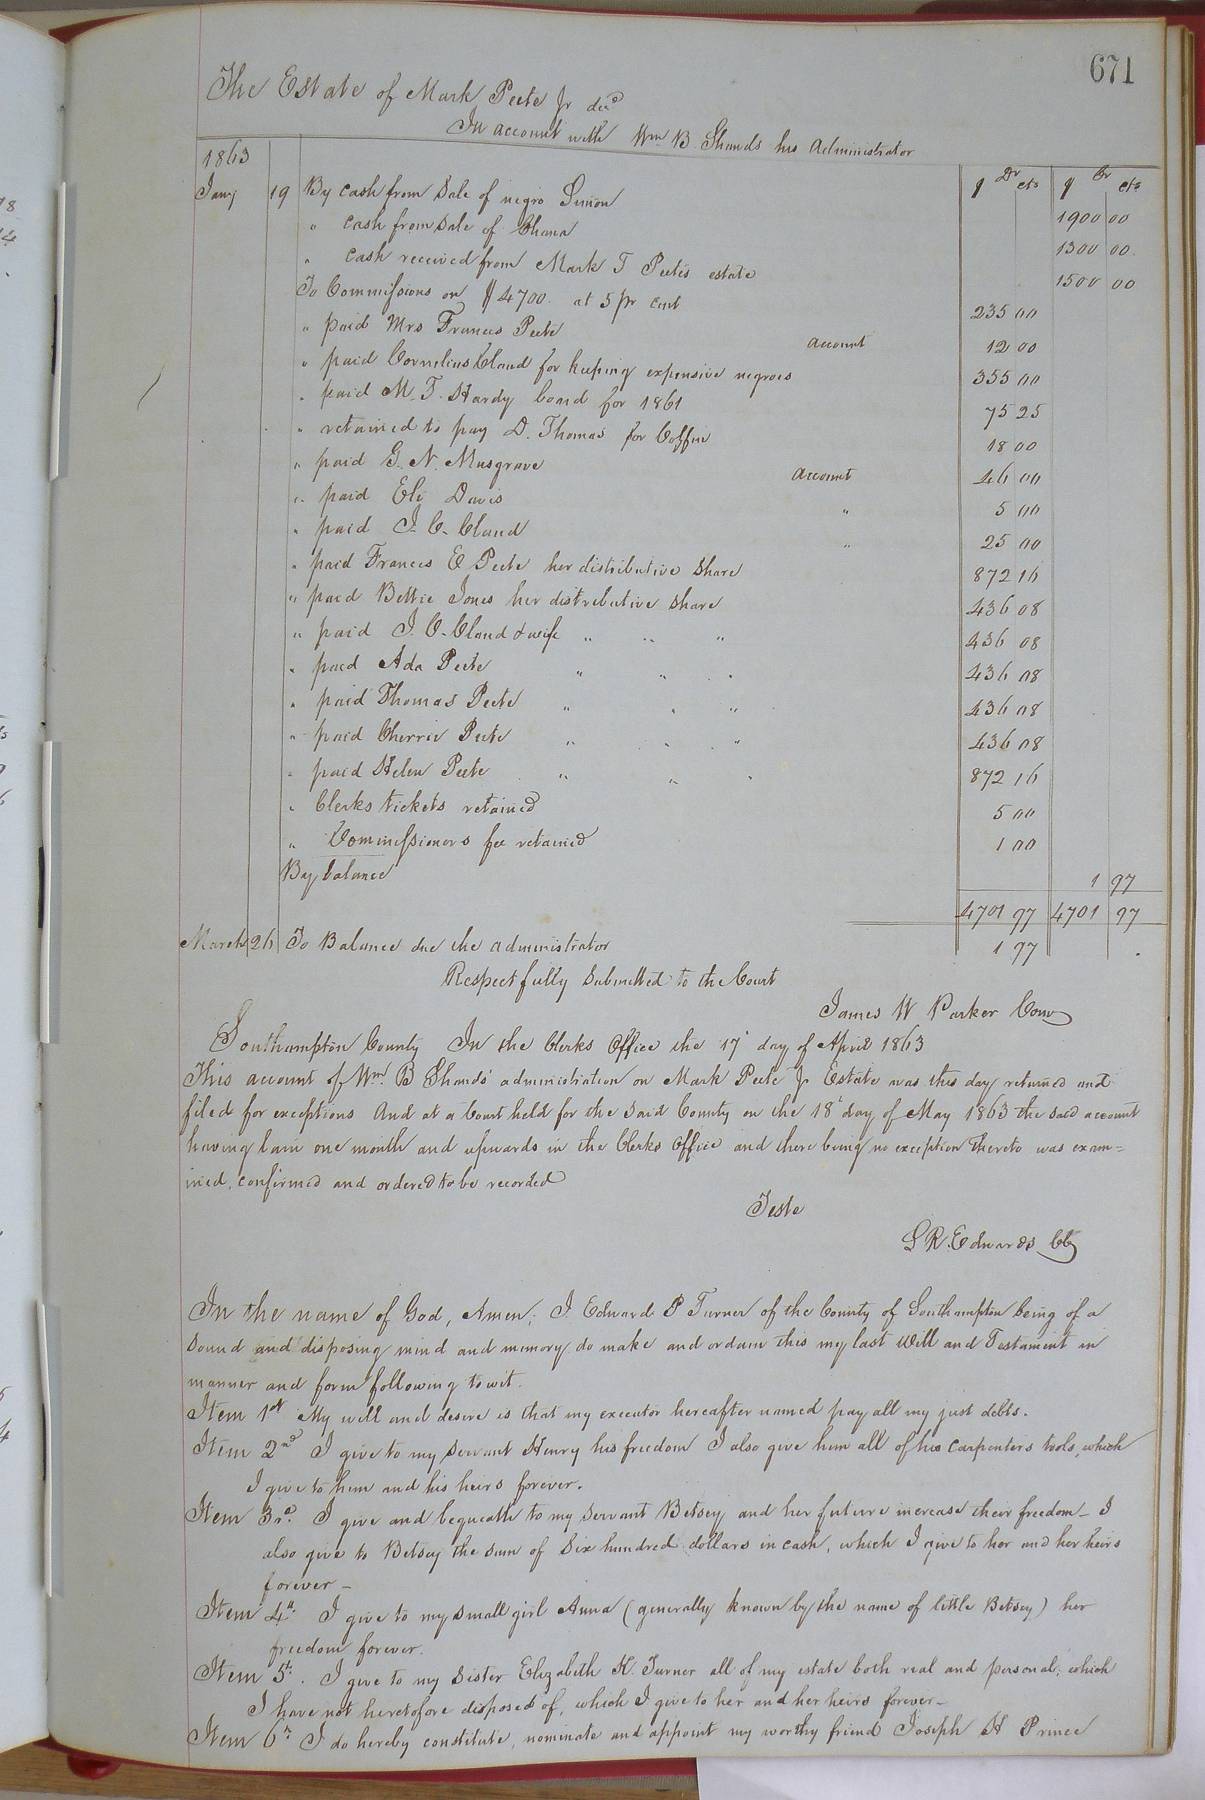 671
The Estate of Mark Peete Jr decd
In account with Wm B. Shands his Administrator
1863
Dr Cr
$ cts $ cts
Jany 19 By cash from Sale of negro Simon 1900 00
" cash from Sale of Chana 1300 00
" cash received from Mark T Peete's estate 1500 00
To Commissions on $4700. at 5 pr cent 235 00
" paid Mrs Frances Peete account 12 00
" paid Cornelius Claud for keeping expensive negroes 355 00
" paid M. T. Hardy board for 1861 75 25
" retained to pay D. Thomas for Coffin 18 00
" paid G. N. Musgrave account 46 00
" paid Eli Davis " 5 00
" paid J. C. Claud " 25 00
" paid Frances E Peete her distributive share 872 16
" paid Bettie Jones her distributive share 436 08
" paid J. C. Claud & wife " " " 436 08
" paid Ada Peete " " " 436 08
" paid Thomas Peete " " " 436 08
" paid Cherrie Peete " " " 436 08
" paid Helen Peete " " " 872 16
" Clerks tickets retained 5 00
" Commissioners fee retained 1 00
By balance 1 97
4701 97 4701 97
March 26 To Balance due the administrator 1 97
Respectfully Submitted to the Court
James W Parker Com
Southampton County In the Clerks Office the 17 day of April 1863
This account of Wm B Shands' administration on Mark Peete Jr Estate was this day returned and
filed for exceptions And at a Court held for the said County on the 18 day of May 1863 the said account
having lain one month and upwards in the Clerks Office and there being no exception thereto was exam=
ined, confirmed and ordered to be recorded
Teste
L R. Edwards Clk
In the name of God, Amen; I Edward P Turner of the County of Southampton being of a
sound and disposing mind and memory do make and ordain this my last Will and Testament in
manner and form following to wit.
Item 1st My will and desire is that my executor hereafter named pay all my just debts.
Item 2nd I give to my servant Henry his freedom I also give him all of his carpenters tools, which
I give to him and his heirs forever.
Item 3rd. I give and bequeath to my servant Betsey and her future increase their freedom - I
also give to Betsey the sum of Six hundred dollars in cash, which I give to her and her heirs
forever -
Item 4th. I give to my small girl Anna (generally known by the name of little Betsey) her
freedom forever.
Item 5th. I give to my sister Elizabeth K. Turner all of my estate both real and personal, which
I have not heretofore disposed of, which I give to her and her heirs forever -
Item 6th I do hereby constitute, nominate and appoint my worthy friend Joseph H Prince